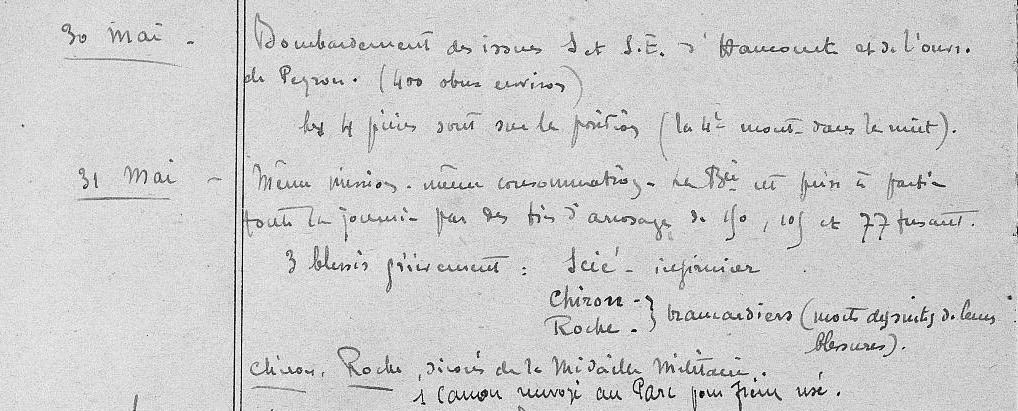 30 Mai - Bombardement des issues S et S.E. d'Haucourt et de l'ouvr.
de Peyron. (400 obus environ)
les 4 pièces sont sur la position (la 4e monte dans la nuit).
31 Mai - Même mission - même consommation - La Bie est prise à partie
toute la journée par des tirs d'arrosage de 150, 105 et 77 fusant.
3 blessés grièvement : Scié - infirmier
Chiron -
Roche - } brancardiers (morts des suites de leurs
blessures).
Chiron, Roche, décorés de la Médaille Militaire.
1 Canon envoyé au Parc pour frein usé.